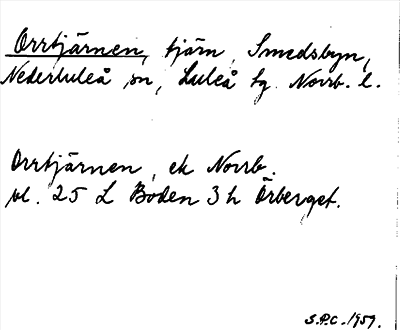 Orrtjärnen, tjärn, Smedsbyn,
Nederluleå sn, Luleå tg. Norrb. l.
Orrtjärnen, ek Norrb.
bl. 25 L Boden 3 h Örberget.
S.P.C. 1959.